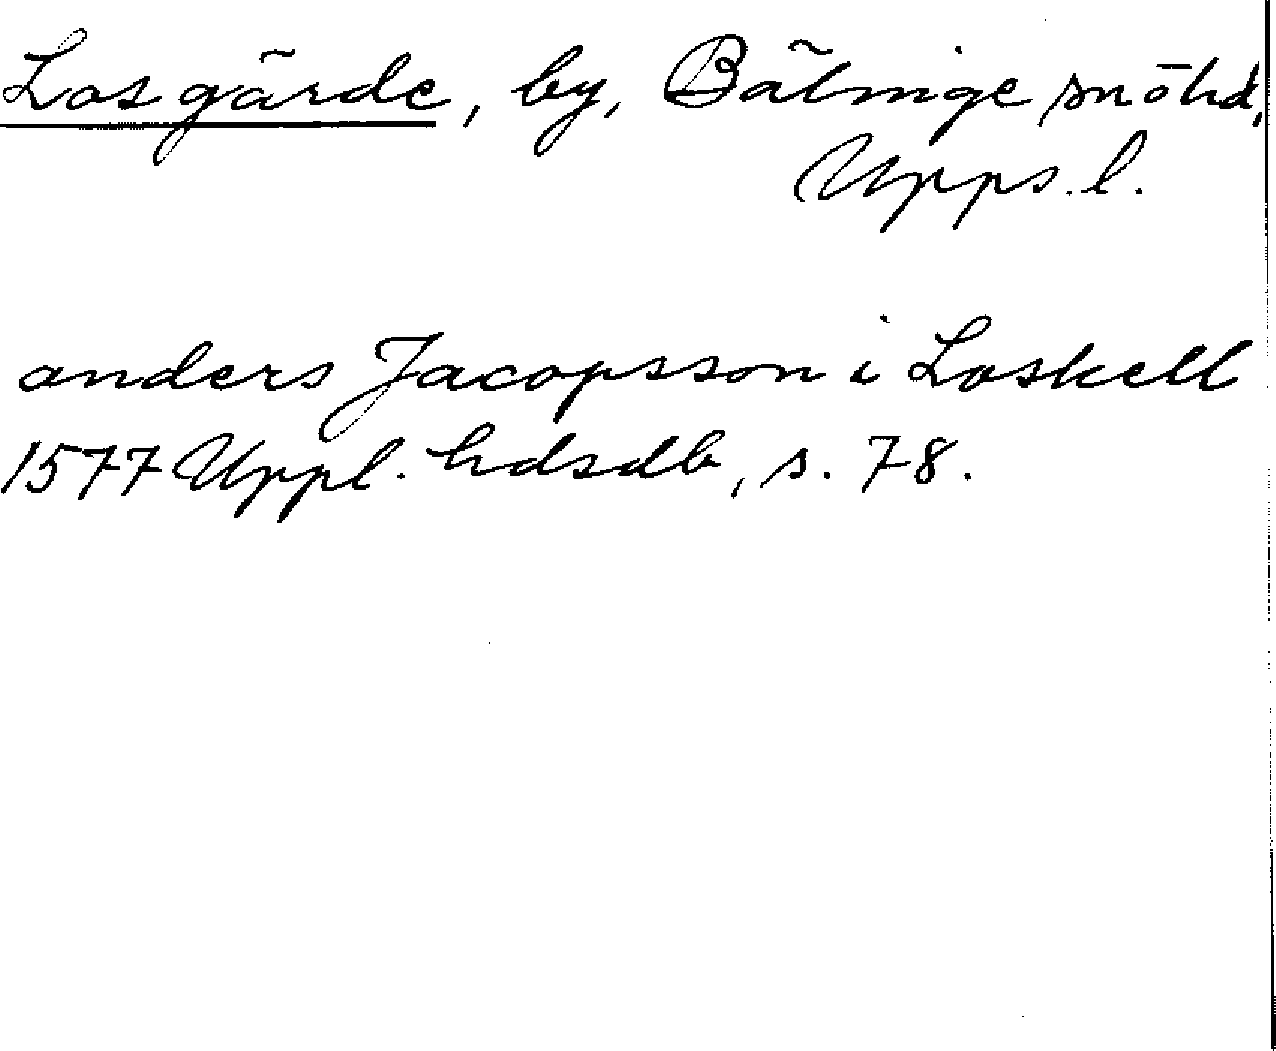 Losgärde, by, Bälinge snöhd,
Upps. l.
anders Jacopsson i Loskell
1577 Uppl. hdsdb, s. 78.